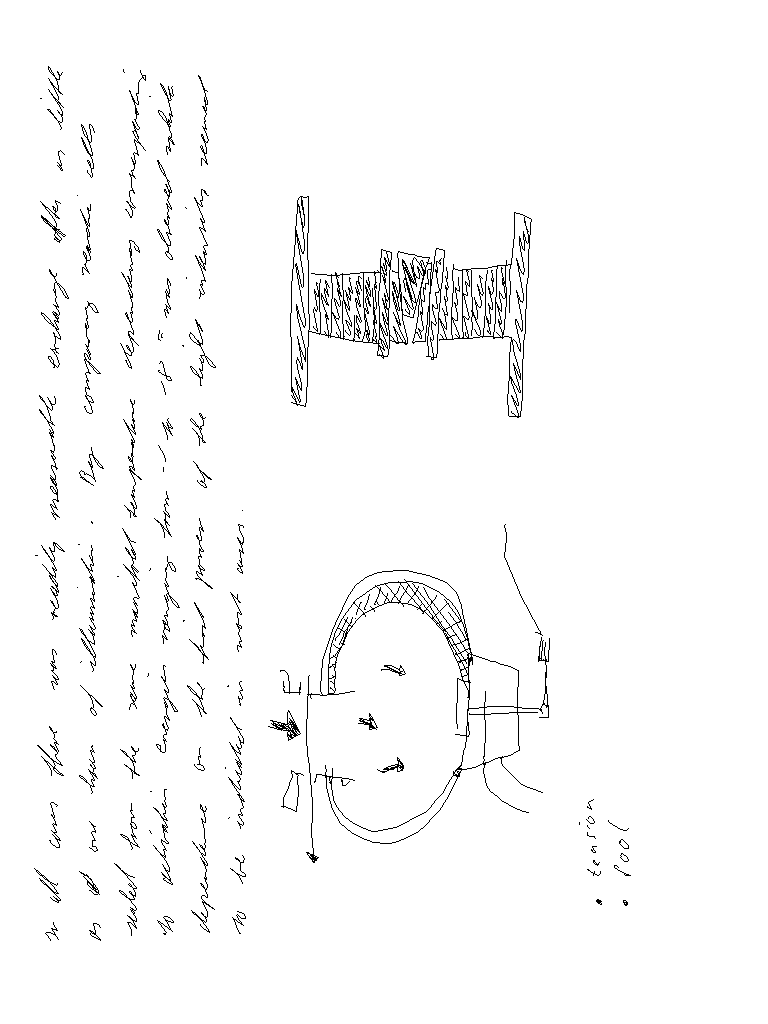 In all cases there was readily measurable exchange after as little
as one hour of illumination. By comparing reaction cells
sealed from the same manifold temperature dependency corresponding
to activation energies ranging from to was observed while
dependence on the first power of the light intensity seemed
to be indicated in most cases.
• tension
• pool